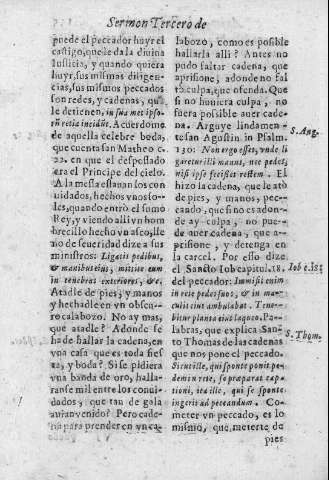 Sermon Tercero de
puede el peccador huyr el
castigo, que le da la diuina
Iusticia, y quando quiera
huyr, sus mismas diligen-
cias, sus mismos peccados
son redes, y cadenas, que
le detienen, in sua met ipso-
rum rete incidunt. Acuerdome
de aquella celebre boda,
que cuenta san Matheo c.
22. en que el desposado
era el Principe del cielo.
A la mesa estauan los con
uidados, hechos vnos so-
les, quando entrò el sumo
Rey, y viendo alli vn hom
brecillo hecho vn asco, lle
no de seueridad dize a sus
ministros: Ligatis pedibus,
& manibus eius, mitite eum
in tenebras exteriores, &c.
Atadle de pies, y manos
y hechadle en vn obscu-
ro calabozo. No ay mas,
que atadle? Adonde se
ha de hallar la cadena, en
vna casa que es toda fies
ta, y boda? Si se pidiera
vna banda de oro, halla-
ranse mil entre los conui
dados, que tan de gala
auian venido? Pero cade-
na para prender en vn ca-
labozo, como es posible
hallarla alli? Antes no
pudo faltar cadena, que
aprisione, adonde no fal
tò culpa, que ofenda. Que
si no huuiera culpa, no
fuera posible auer cade-
na. Arguye lindamen-
te san Agustin in Psalm.
130: Non ergo esset, vnde li
garetur illi manus, nec pedes,
nisi ipse fecisset restem. El
hizo la cadena, que le atò
de pies, y manos, pec-
cando, que si no es adon-
de ay culpa, no pue-
de auer cadena, que a-
prisione, y detenga en
la carcel. Por esso dize
el Sancto Iob capitul. 18.
del peccador: Immisit enim
in rete pedes suos, & in ma-
culis eius ambulabat. Tene-
bitur planta eius laqueo. Pa-
labras, que explica San-
to Thomas de las cadenas
que nos pone el peccado.
Sicut ille, qui sponte ponit pe-
dem in rete, se praeparat cap-
tioni, ita ille, qui se sponte
ingerit ad peccandum. Co-
meter vn peccado, es lo
mismo, que meterte de
pies
S. Ang.
Iob c. 18;
S. Thom.